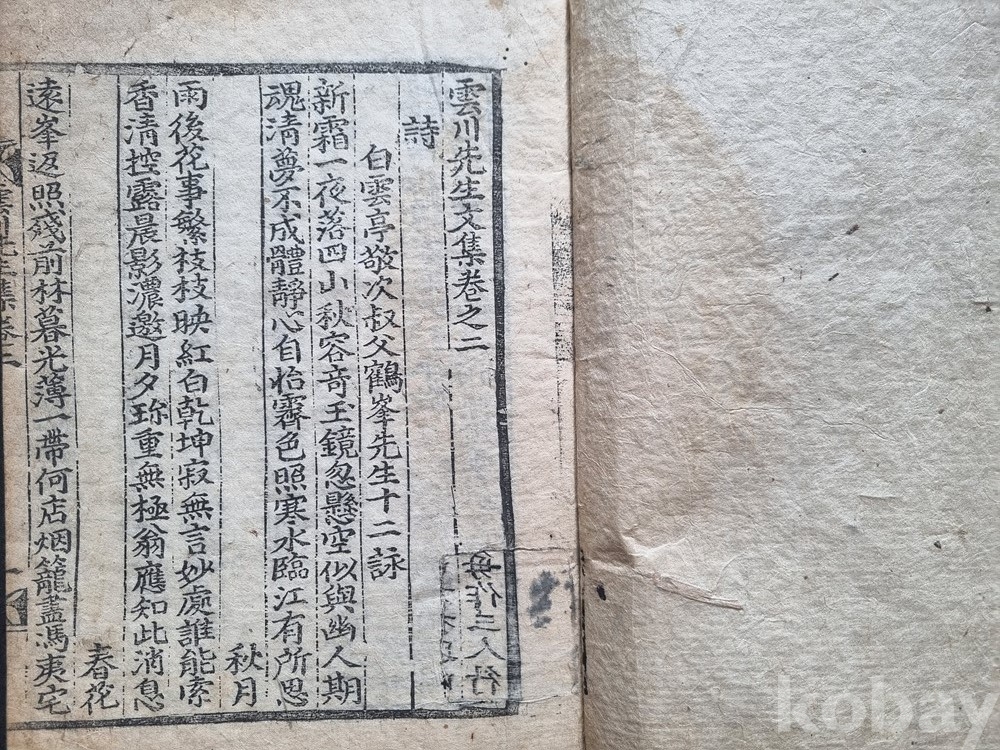 雲川先生文集卷之二
詩
白雲亭敬次叔父鶴峯先生十二詠
新霜一夜落四山秋容奇玉鏡忽懸空似與幽人期
魂淸夢不成體靜心自怡霽色照寒水臨江有所思
秋月
雨後花事繁枝枝映紅白乾坤寂無言妙處誰能索
香淸控露晨影濃邀月夕珎重無極翁應知此消息
春花
遠峯返照殘前林暮光薄一帶何店烟籠盖馮夷宅
雲川先生集卷二
kobay